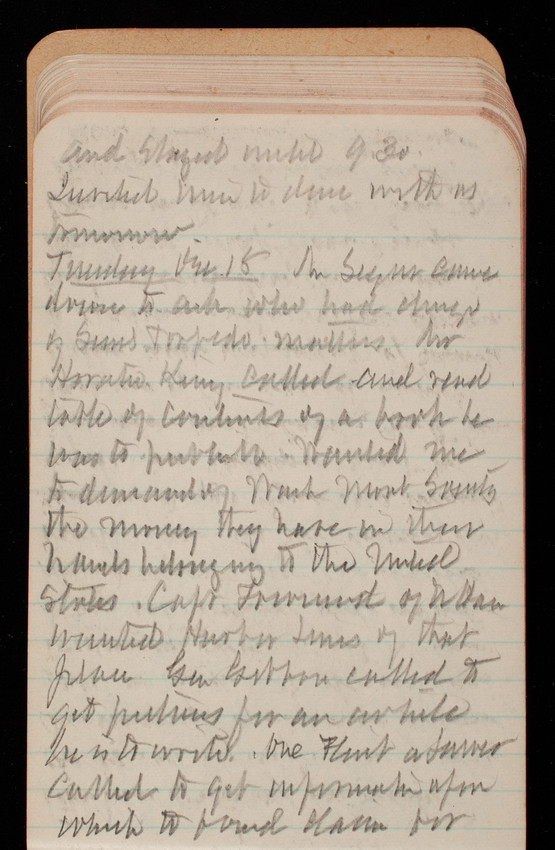 and stayed until 9 30.
Invited him to dine with us
tomorrow
Tuesday Dec. 18 Mr came
down to ask who had charge
of Sims Torpedo matters. Mr
Horatio King called and read
table of contents of a book he
was to publish. Wanted me
to demand of Wash Mont Society
the money they have in their
hands belonging to the United
States. Capt Townsend of N Haven
wanted Harbor Lines of that
place Gen Gibbon called to
get pictures for an article
he is to write. One Flint a lawyer
called to get information upon
which to found claim for